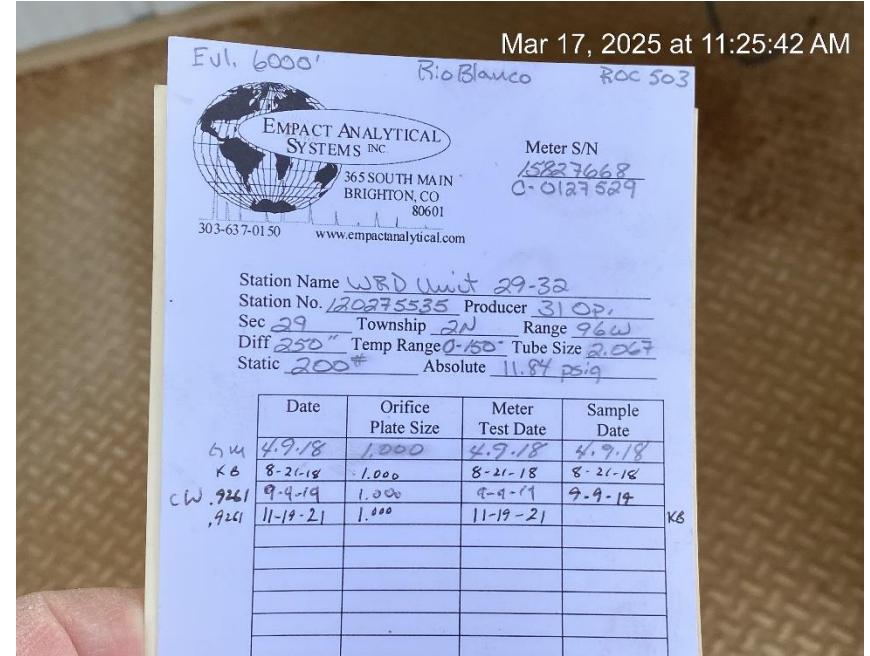 Mar 17, 2025 at 11:25:42 AM
Evl. 6000' Rio Blanco ROC 503
EMPACT ANALYTICAL
SYSTEMS INC.
365 SOUTH MAIN
BRIGHTON, CO
80601
303-637-0150 www.empactanalytical.com
Meter S/N
15827668
C-0127529
Station Name WRD Unit 29-32
Station No. 120275535 Producer 31 Op.
Sec 29 Township 2N Range 96W
Diff 250" Temp Range 0-150° Tube Size 2.067
Static 200# Absolute 11.84 psig
Date Orifice Plate Size Meter Test Date Sample Date
4.9.18 1.000 4.9.18 4.9.18
KB 8-21-18 1.000 8-21-18 8-21-18
CW .9261 9-9-19 1.000 9-9-19 9-9-19
.9261 11-19-21 1.000 11-19-21 KB